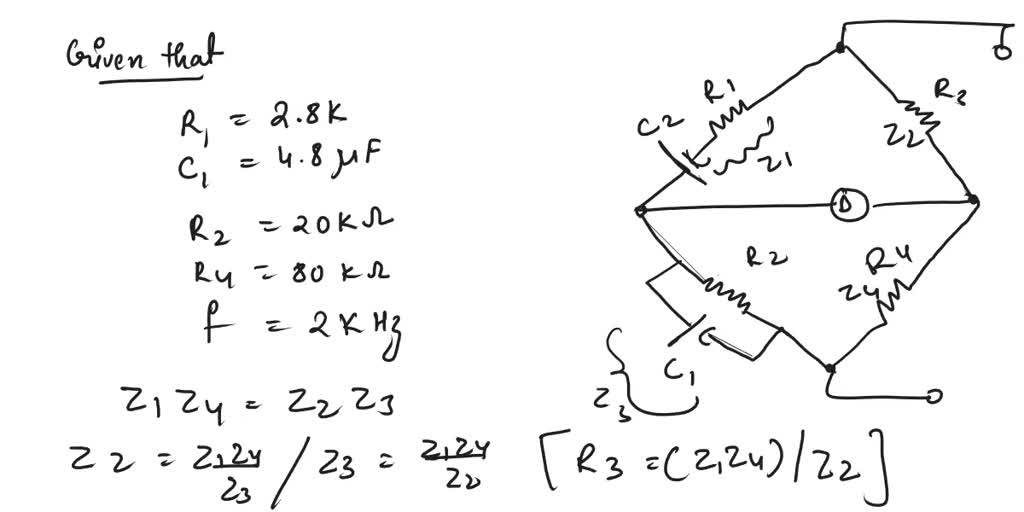 Given that
R₁ = 2.8K
C₁ = 4.8 μF
R₂ = 20KΩ
R4 = 80 KΩ
f = 2K Hz
Z1 Z4 = Z2 Z3
Z2 = Z1Z4/Z3 / Z3 = Z1Z4/Z2 [R3 = (Z1Z4)/Z2]
R1
C2
Z1
R3
Z2
D
R2
R4
Z4
C1
Z3